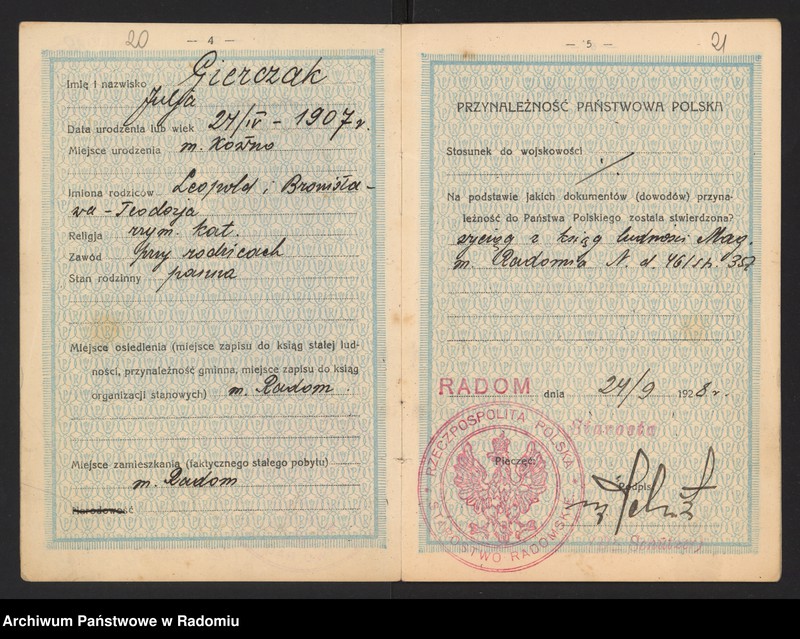 20
— 4 —
Imię i nazwisko Gierczak
Julja
Data urodzenia lub wiek 24/IV – 1907 r.
Miejsce urodzenia m. Kowno
Imiona rodziców Leopold i Bronisła-
wa – Teodozja
Religja rzym. kat.
Zawód przy rodzicach
Stan rodzinny panna
Miejsce osiedlenia (miejsce zapisu do ksiąg stałej lud-
ności, przynależność gminna, miejsce zapisu do ksiąg
organizacji stanowych) m. Radom
Miejsce zamieszkania (faktycznego stałego pobytu)
m. Radom
Narodowość
— 5 —
21
PRZYNALEŻNOŚĆ PAŃSTWOWA POLSKA
Stosunek do wojskowości
Na podstawie jakich dokumentów (dowodów) przyna-
leżność do Państwa Polskiego została stwierdzona?
wyciąg z ksiąg ludności Mag.
m. Radomia N. d. 46/st. 357
RADOM dnia 24/9 1928 r.
Starosta
Pieczęć.
Podpis
RZECZPOSPOLITA POLSKA
STAROSTWO RADOMSKIE
Archiwum Państwowe w Radomiu